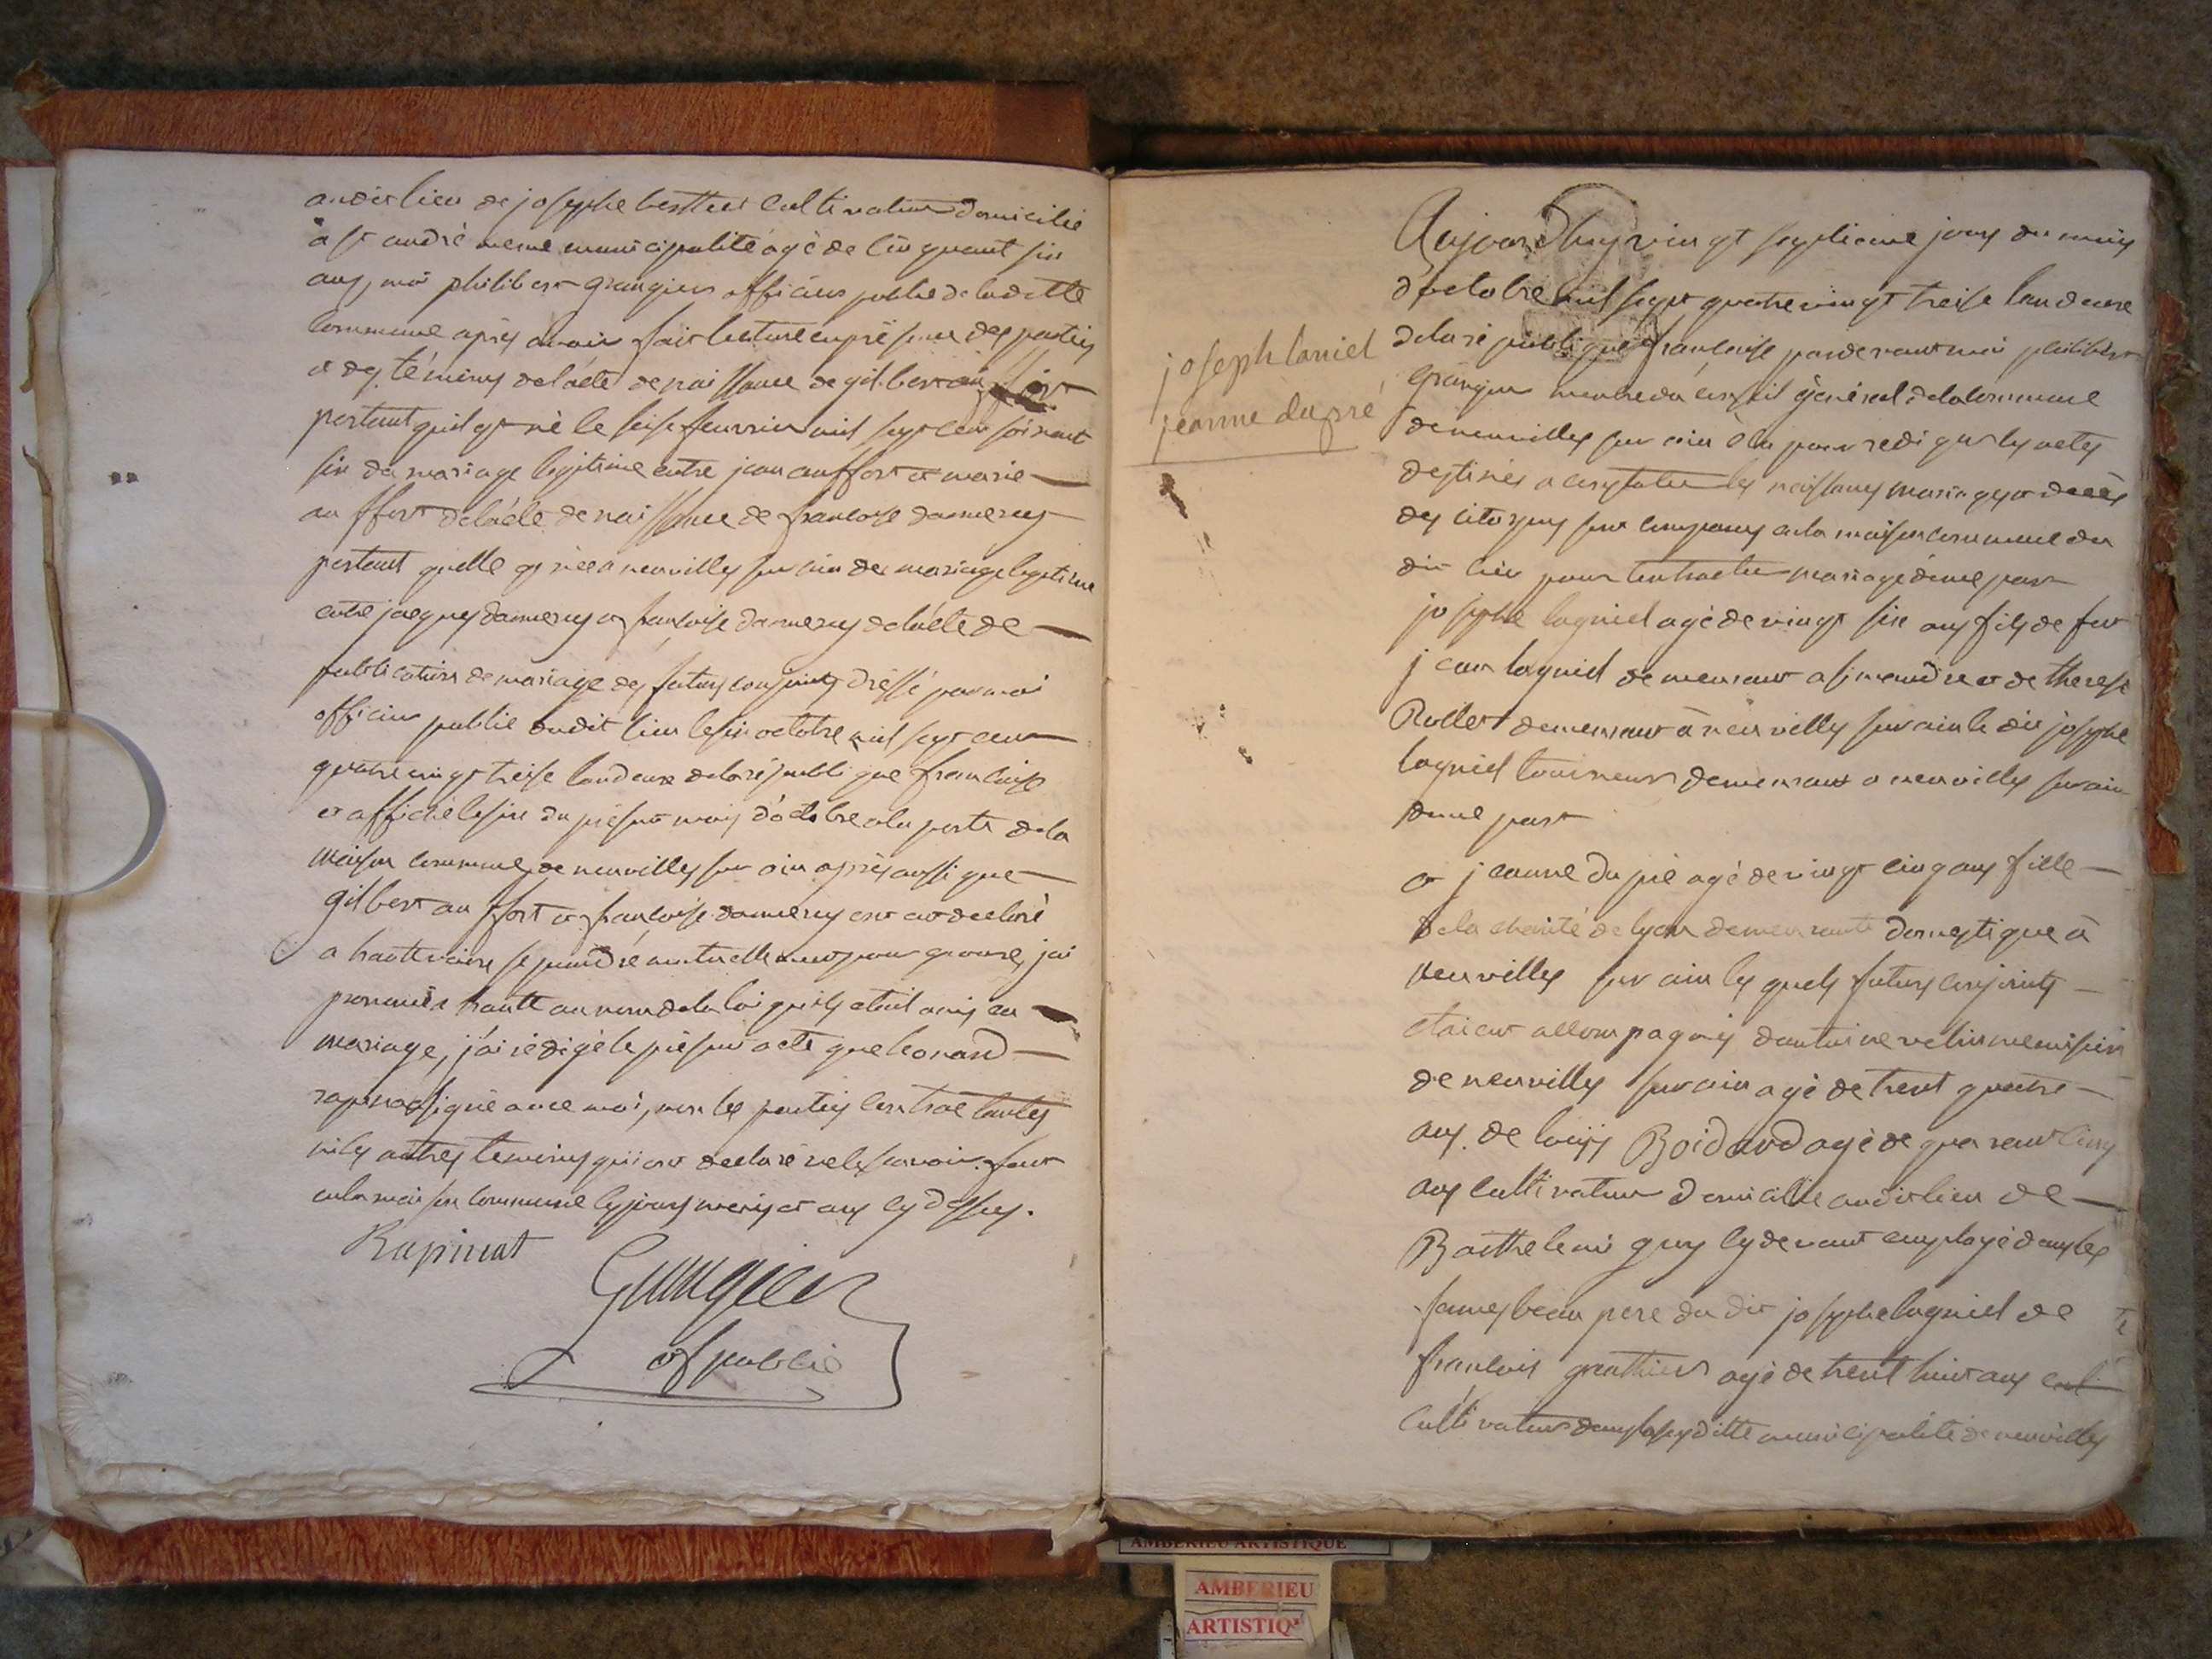 audit lieu de josephe berthet cultivateur domicilié
a st andré meme municipalité agé de cinquant six
ans, moi philibert grangier officier public de laditte
commune après avoir fait lecture en présence des parties
et des témoins de l'acte de naissance de gilbert auffort
portant quil est né le seise feuvrier mil sept cent soixant
six du mariage legitime entre jean auffort et marie
auffort de l'acte de naissance de francoise dannerey
portant quelle est née a neuvilles sur ain du mariage legitime
entre jacques dannerey et francoise dannerey de l'acte de
publication de mariage des futurs conjoints dréssé par moi
officier public dudit lieu le six octobre mil sept cent
quatre vingt treise lan deux de la république francoise
et affiché le six du présent mois d'octobre a la porte de la
maison commune de neuvilles sur ain après aussi que
gilbert auffort et francoise dannerey ont eut declaré
a haute voix se prendré mutuellement pour epoux, jai
prononcés haute au nom de la loi quils etoit unis en
mariage, j'ai rédigé le présent acte que leonard
rapinat signé avec moi, non les parties contractantes
ni les autres temoins qui ont declaré ne le scavoir. fait
en la maison commune les jours mois et ans cy dessus.
Rapinat
Grangier
of public
joseph laniel
jeanne dupré
Aujourd'huy vingt septieme jours du mois
d'octobre mil sept quatre vingt treise lan deuxe
de la république francoise pardevant moi philibert
Grangier membre du conseil général de la commune
de neuvilles sur ain élu pour rediger les actes
destinés a constater les naissances mariages et décès
des citoyens sont comparus en la maison commune du
dit lieu pour contracter mariage d'une part
josephe lagniel agé de vingt six ans fils de feu
jean lagniel demeurant a simandre et de therese
Rollet demeurant à neuvilles sur ain le dit josephe
lagniel tourneur demeurant a neuvilles sur ain
d'une part
et jeanne dupré agé de vingt cinq ans fille
de la charité de lyon demeurante domestique à
neuvilles sur ain les quels futurs conjoints
etoient accompagnés d'antoine velin menuisier
de neuvilles sur ain agé de trent quatre
ans. de louijs Boidard agé de quarant cinq
ans cultivateur domicilié audit lieu de
Barthelemi guy cy devant employé dans les
fermes beau pere du dit josephe lagniel de
francois gauthier agé de trent huit ans culi
cultivateur dans la susditte municipalité de neuvilles
AMBERIEU ARTISTIQUE
AMBERIEU
ARTISTIQ